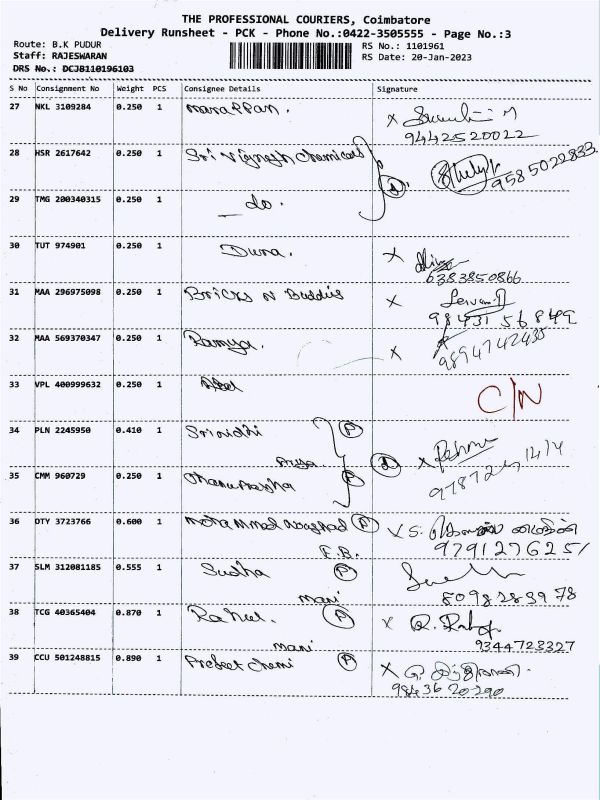 THE PROFESSIONAL COURIERS, Coimbatore
Delivery Runsheet - PCK - Phone No.:0422-3505555 - Page No.:3
Route: B.K PUDUR
Staff: RAJESWARAN
DRS No.: DCJB110196103
RS No.: 1101961
RS Date: 20-Jan-2023
S No Consignment No Weight PCS Consignee Details Signature
27 NKL 3109284 0.250 1
9442520022
28 HSR 2617642 0.250 1 Sri Vignesh Chemicals
9585022833
29 TMG 200340315 0.250 1 do.
30 TUT 974901 0.250 1 Dura. X
6383850866
31 MAA 296975098 0.250 1 Bricks N Buddys X
98431 56849
32 MAA 569370347 0.250 1 Ramya. X
9894742435
33 VPL 400999632 0.250 1 C/N
34 PLN 2245950 0.410 1 Srinidhi P
Priya
35 CMM 960729 0.250 1 P
36 DTY 3723766 0.600 1 Mohammed P X S.
E.B. 9791276251
37 SLM 312081185 0.555 1 Sudha P
Mani 8098283978
38 TCG 40365404 0.870 1 Rahul. P X R. Rahul
Mani 9344723327
39 CCU 501248815 0.890 1 Prefect Chemi P X
9843620290